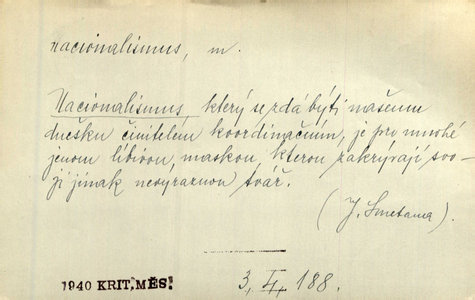 nacionalismus, m.
Nacionalismus, který se zdá býti našemu
dnešku činitelem koordinačním, je pro mnohé
jenom líbivou maskou, kterou zakrývají svo-
ji jinak nevýraznou tvář.
(J. Smetana).
1940 KRIT. MĚS! 3, 4, 188.